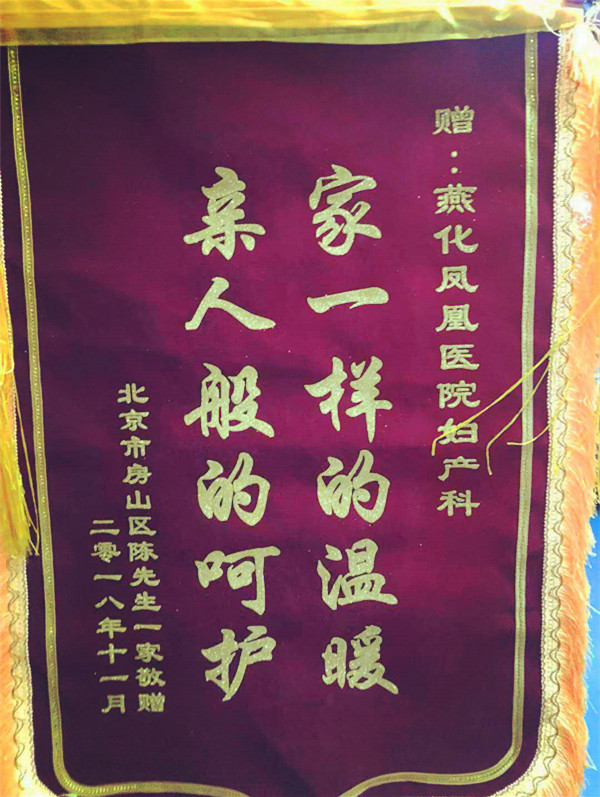 赠：燕化凤凰医院妇产科
家一样的温暖
亲人般的呵护
北京市房山区陈先生一家敬赠
二零一八年十一月